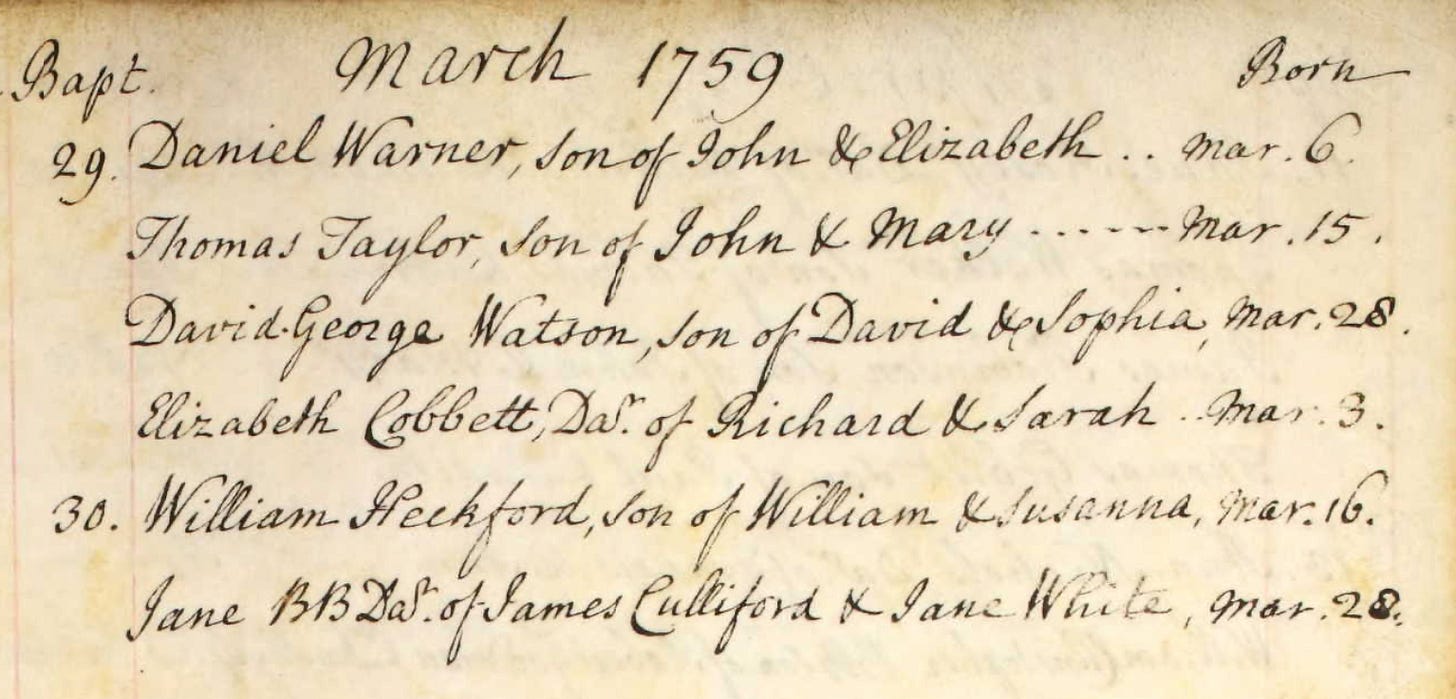 Bapt. March 1759 Born
29. Daniel Warner, son of John & Elizabeth .. Mar. 6.
Thomas Taylor, son of John & Mary ------ Mar. 15.
David-George Watson, son of David & Sophia, Mar. 28.
Elizabeth Cobbett, Daʳ. of Richard & Sarah .. Mar. 3.
30. William Heckford, son of William & Susanna, Mar. 16.
Jane BB Daʳ. of James Culliford & Jane White, Mar. 28.